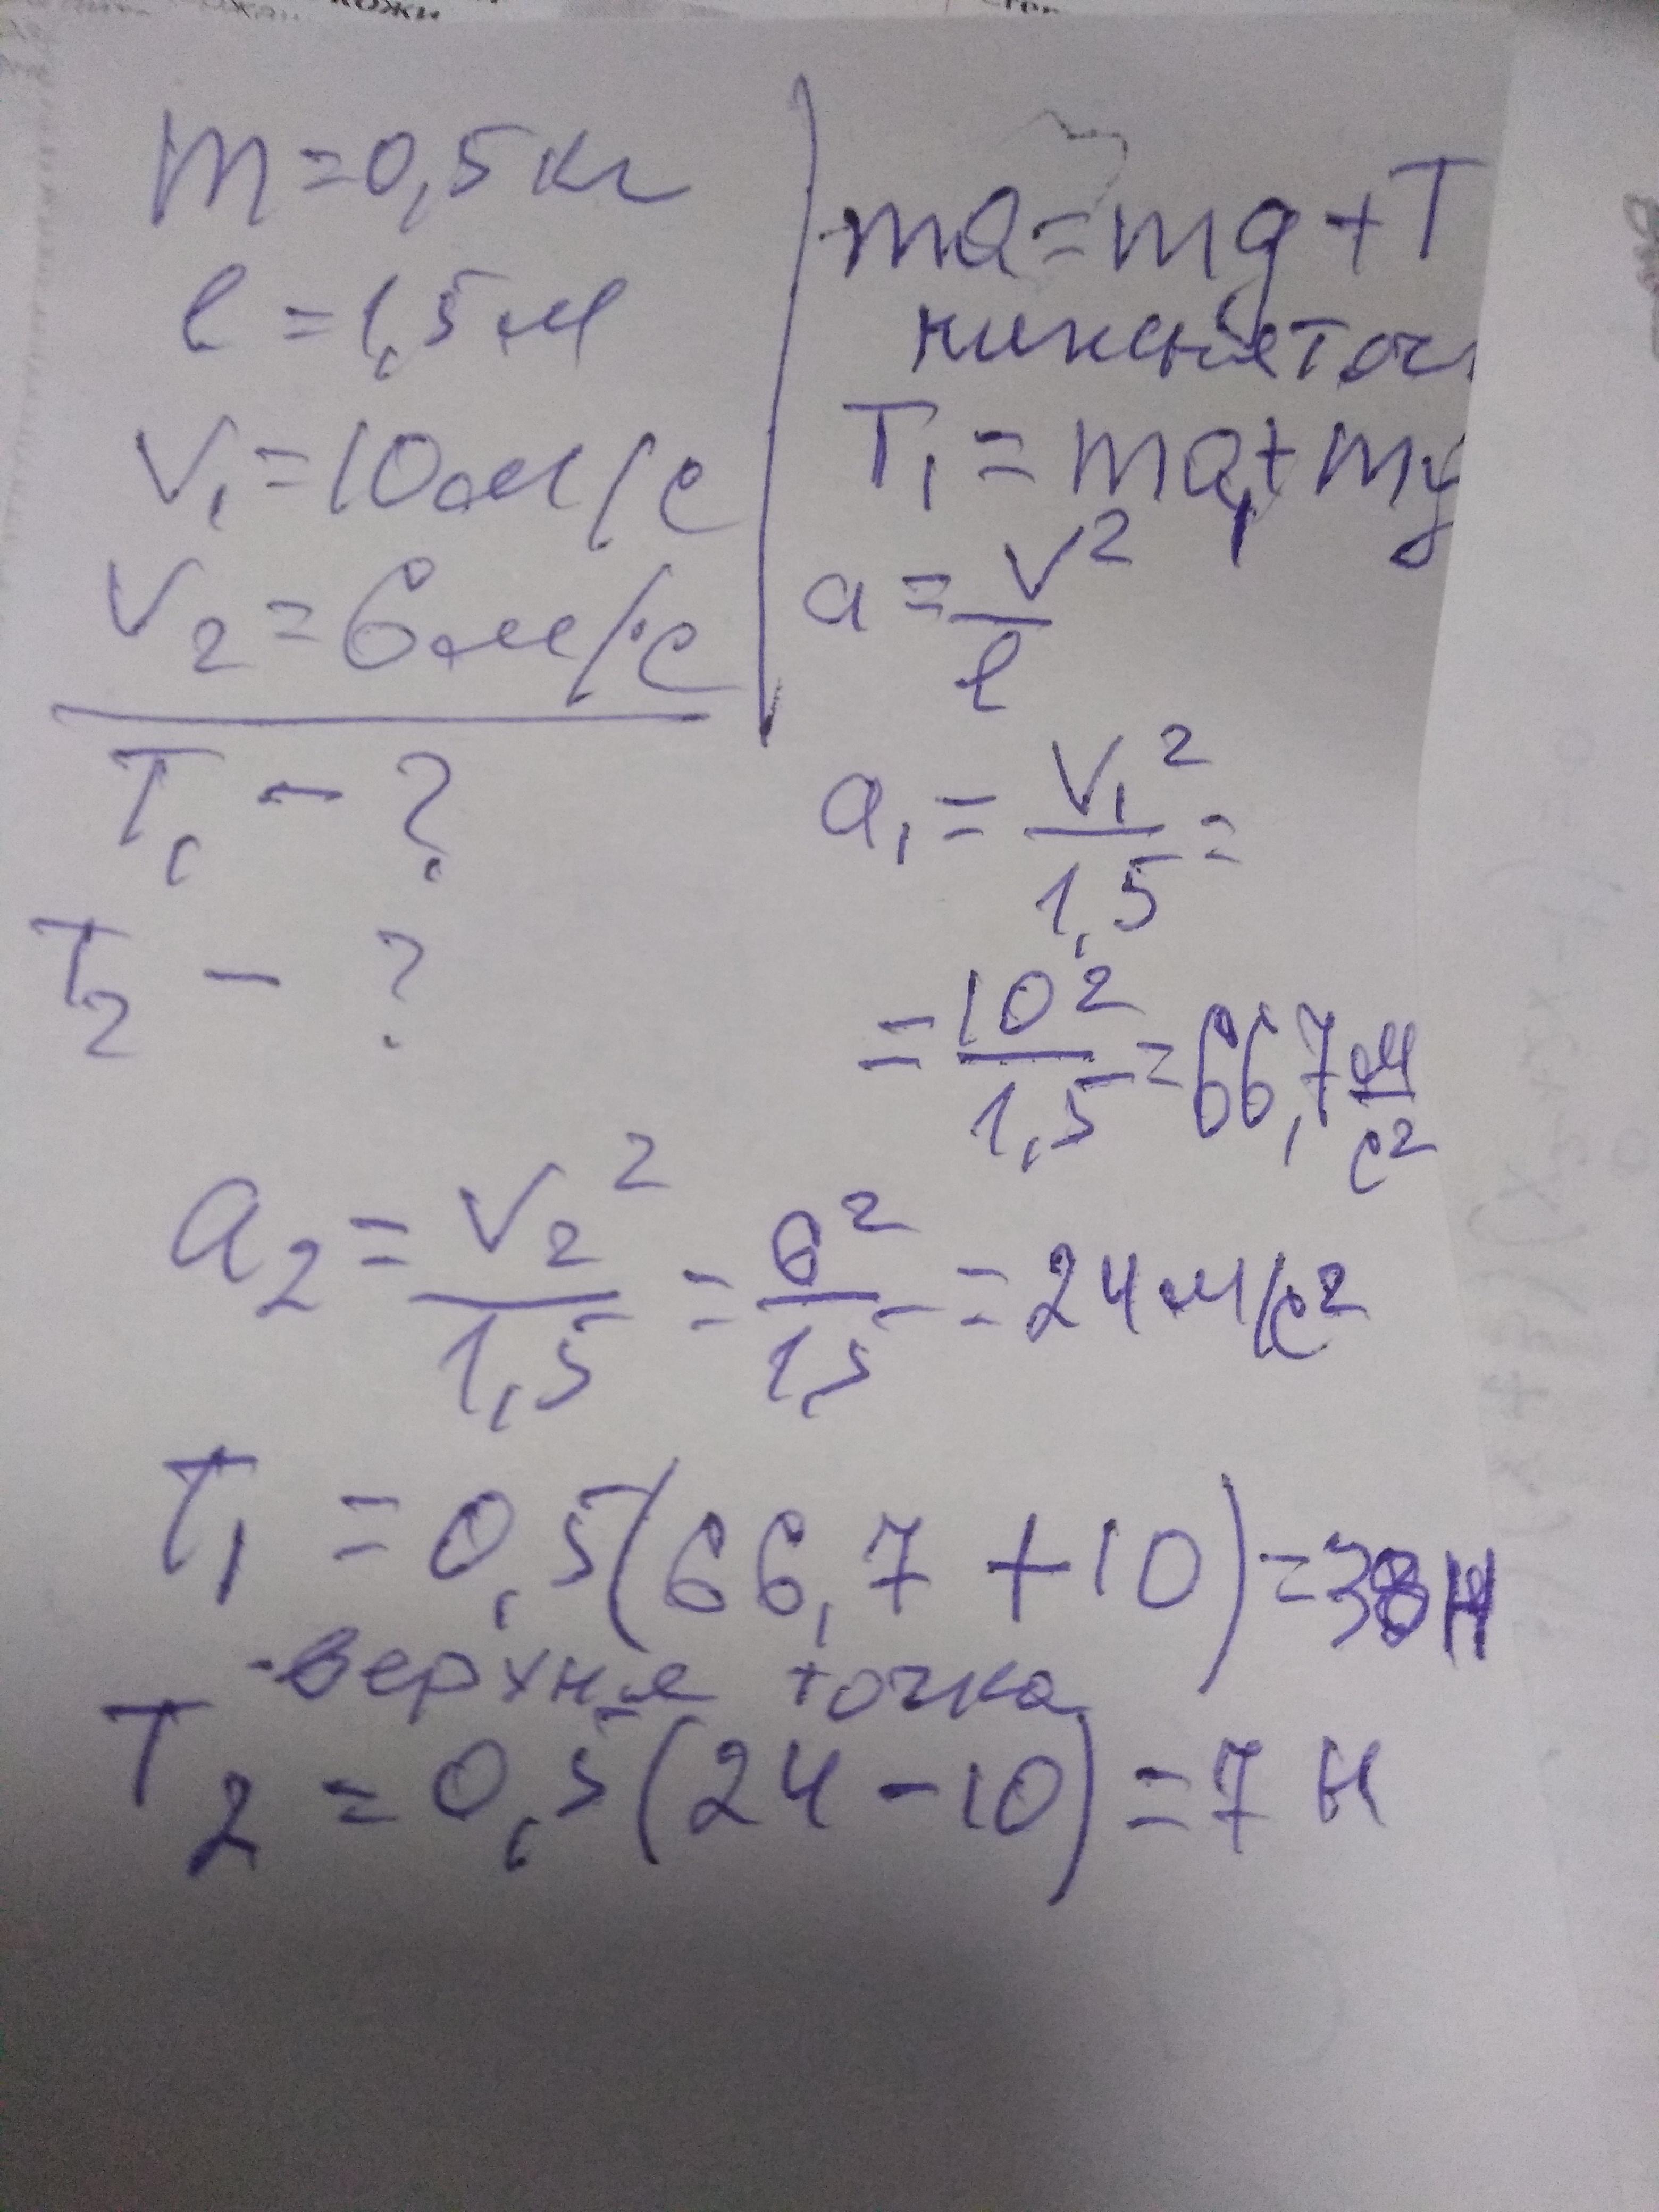 кожи
m = 0,5 кг
l = 1,5 м
V₁ = 10 м/с
V₂ = 6 м/с
T₁ - ?
T₂ - ?
ma = mg + T
нижняя точ
T₁ = ma₁ + mg
a = V²/l
a₁ = V₁²/1,5 =
= 10²/1,5 = 66,7 м/с²
a₂ = V₂²/1,5 = 6²/1,5 = 24 м/с²
T₁ = 0,5(66,7 + 10) = 38 Н
- верхняя точка
T₂ = 0,5(24 - 10) = 7 Н